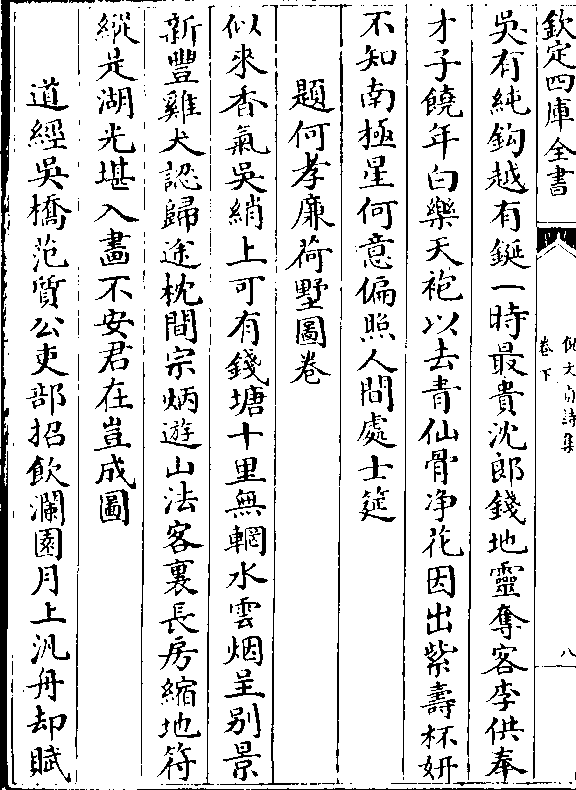 欽定四庫全書
倪文貞詩集
卷下
八
吳有純鈎越有鋋一時最貴沈郎錢地靈奪客李供奉
才子饒年白樂天袍以去青仙骨净花因出紫壽杯妍
不知南極星何意偏照人間處士筵
題何孝廉荷墅圖卷
似來香氣吳綃上可有錢塘十里無輞水雲烟呈别景
新豐雞犬認歸途枕間宗炳遊山法客裏長房縮地符
縱是湖光堪入畫不安君在豈成圖
道經吳橋范質公吏部招飲瀾園月上汎舟却賦